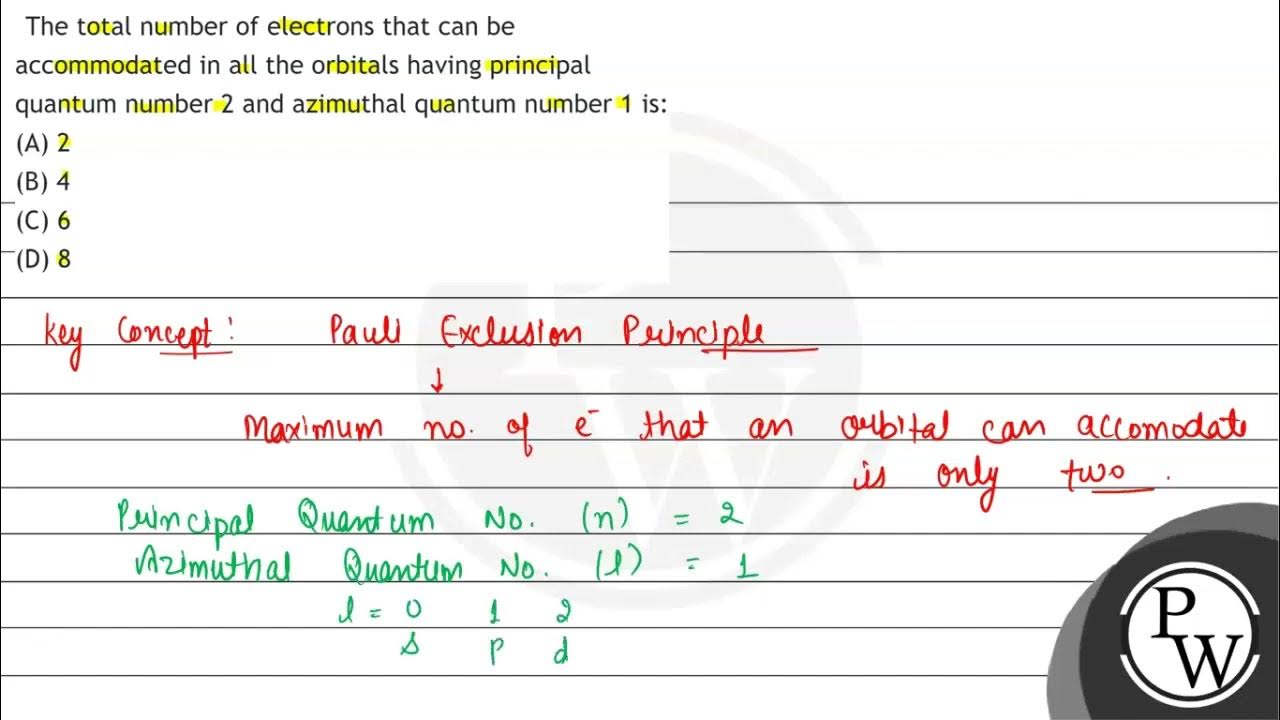 The total number of electrons that can be
accommodated in all the orbitals having principal
quantum number 2 and azimuthal quantum number 1 is:
(A) 2
(B) 4
(C) 6
(D) 8
Key Concept: Pauli Exclusion Principle
↓
Maximum no. of e⁻ that an orbital can accomodate
is only two.
Principal Quantum No. (n) = 2
Azimuthal Quantum No. (l) = 1
l = 0 1 2
s p d
P
W